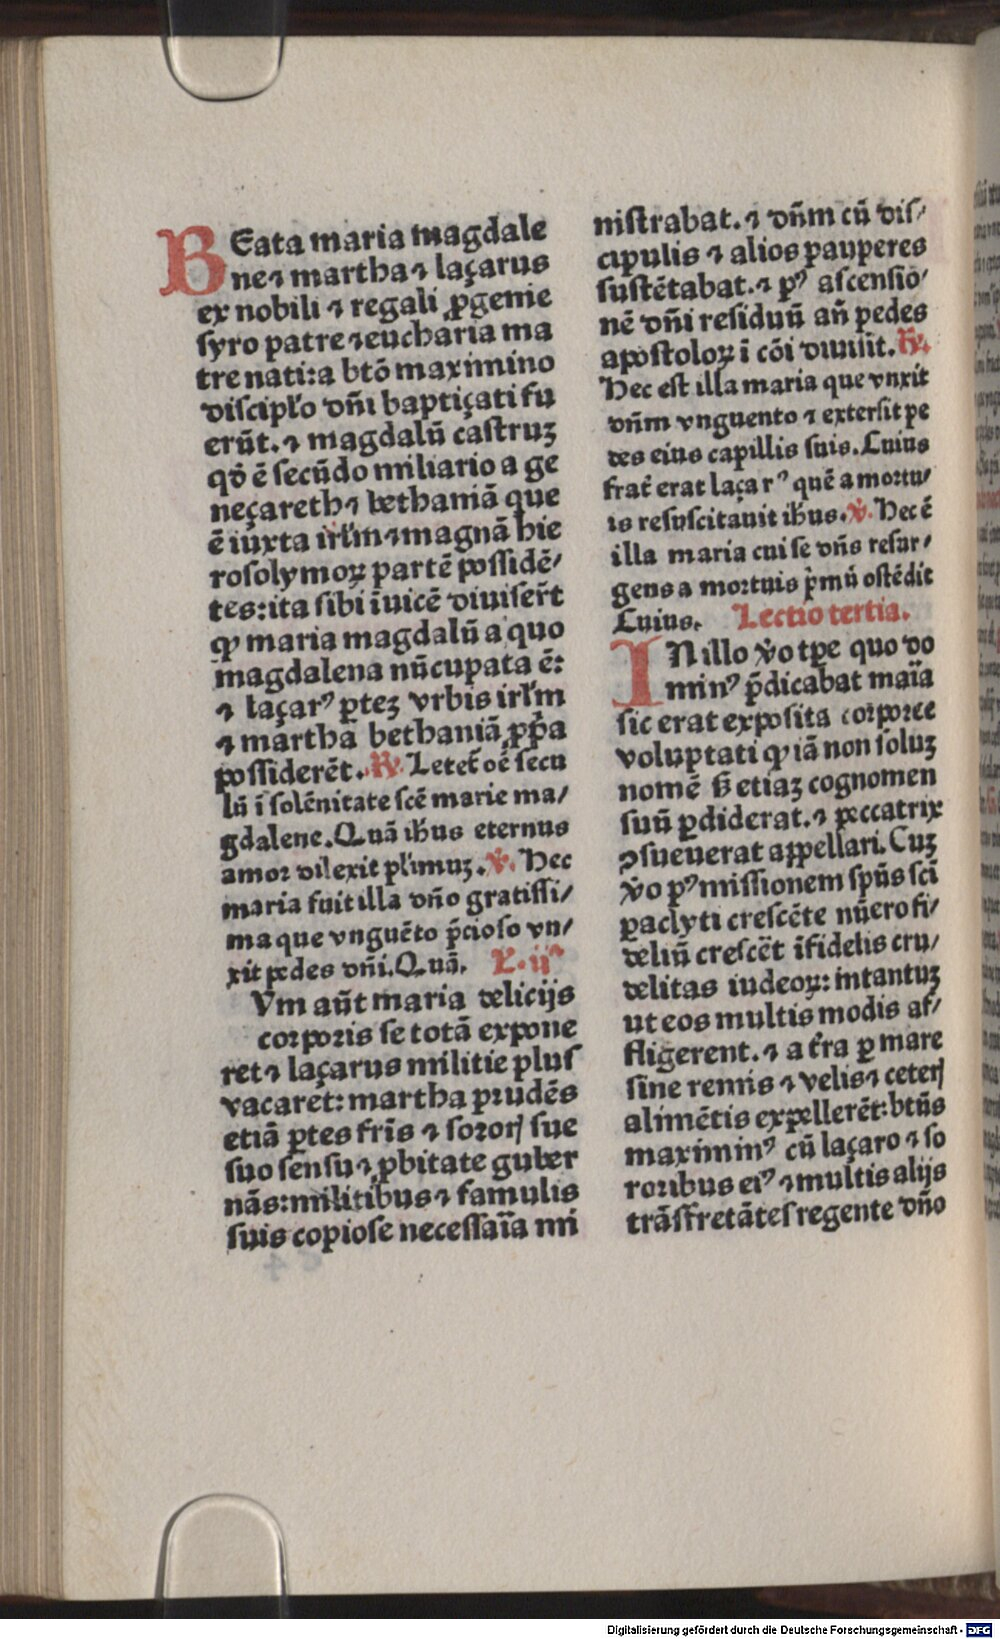 BEata maria magdale
ne ⁊ martha ⁊ laçarus
ex nobili ⁊ regali ꝓgenie
ſyro patre ⁊ eucharia ma
tre nati: a btō maximino
diſcipl'o dn̄i baptiçati fu
erūt. ⁊ magdalū caſtruꝫ
qd̄ ē ſecūdo miliario a ge
neçareth ⁊ bethaniā que
ē iuxta irl'm ⁊ magnā hie
roſolymoꝝ partē poſſidē/
tes: ita ſibi īuicē diuiſer̄t
ꝙ maria magdalū a quo
magdalena nūcupata ē:
⁊ laçarꝰ ꝑteꝫ vrbis irl'm
⁊ martha bethaniā ꝓp̄a
poſſiderēt. R̄. Letet̄ oē ſecu
lū ī ſolēnitate ſcē marie ma/
gdalene. Quā ih̄us eternus
amor dilexit pl'imuꝫ. ꝟ. Hec
maria fuit illa dn̄o gratiſſi/
ma que vnguēto p̄cioſo vn/
xit pedes dn̄i. Quā. L. ij
Vm aūt maria delicijs
corporis ſe totā expone
ret ⁊ laçarus militie pluſ
vacaret: martha prudēs
etiā ꝑtes fr̄is ⁊ ſororꝭ ſue
ſuo ſenſu ⁊ ꝓbitate guber
nās: militibus ⁊ famulis
ſuis copioſe neceſſaīa mi
niſtrabat. ⁊ dn̄m cū diſ/
cipulis ⁊ alios pauperes
ſuſtētabat. ⁊ pꝰ aſcenſio/
nē dn̄i reſiduū an̄ pedes
apoſtoloꝝ ī cōi diuiſit. R̄.
Hec eſt illa maria que vnxit
dn̄m vnguento ⁊ exterſit pe
des eius capillis ſuis. Cuius
frat̄ erat laçarꝰ quē a mortu/
is reſuſcitauit ih̄us. ꝟ. Hec ē
illa maria cui ſe dn̄s reſur/
gens a mortuis p̄mū oſtēdit
Cuius. Lectio tertia.
IN illo ꝟo tp̄e quo do
minꝰ p̄dicabat maīa
ſic erat expoſita corporee
voluptati ꝙ iā non ſoluꝫ
nomē ſꝫ etiaꝫ cognomen
ſuū ꝑdiderat. ⁊ peccatrix
ꝯſueuerat appellari. Cuꝫ
ꝟo pꝰ miſſionem ſpūs ſcī
paclyti creſcēte nūero fi/
deliū creſcēt īfidelis cru/
delitas iudeoꝝ: intantuꝫ
ut eos multis modis af/
fligerent. ⁊ a t̄ra ꝑ mare
ſine remis ⁊ velis ⁊ ceterꝭ
alimētis expellerēt: btūs
maximinꝰ cū laçaro ⁊ ſo
roribus eiꝰ ⁊ multis alijs
trāſfretāteſ regente dn̄o
Digitalisierung gefördert durch die Deutsche Forschungsgemeinschaft - DFG